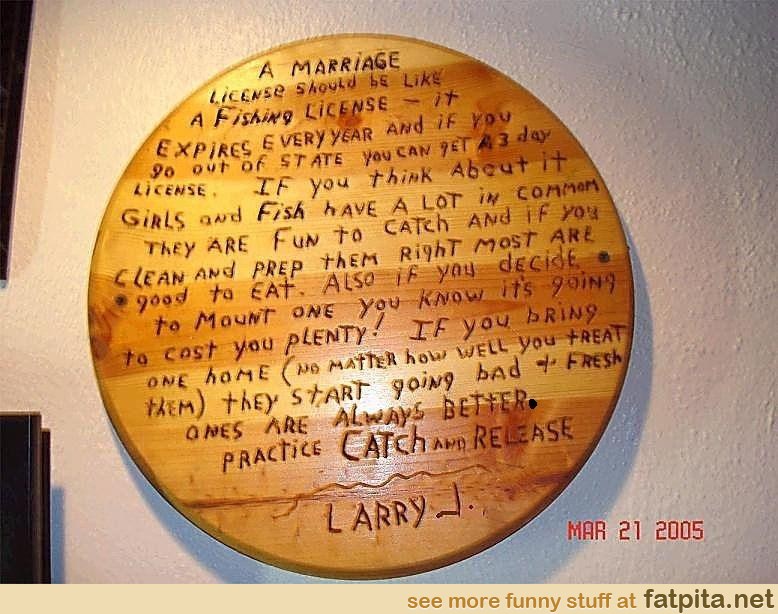 A MARRiAGE
LiCENSE ShouLd bE LikE
A Fishing LiCENSE - it
EXPiRES EVERYYEAR And iF you
go out oF STATE you CAN gET A 3 day
LiCENSE. IF you think About it
GiRLS and Fish hAVE A LOT iN COMMOM
They ARE Fun to CATCh And iF you
CLEAN ANd PREP thEM Right MOST ARE
good to EAT. ALSO iF you dECidE
to MOUNT ONE you KNOW it's going
to COST you pLENTY! IF you bRiNg
ONE hOME (no MATTER how WELL you tREAT
thEM) thEy START going bAd + FRESh
ONES ARE ALWAYS BETTER.
PRACTiCE CATCh AND RELEASE
LARRY J.
MAR 21 2005
see more funny stuff at fatpita.net